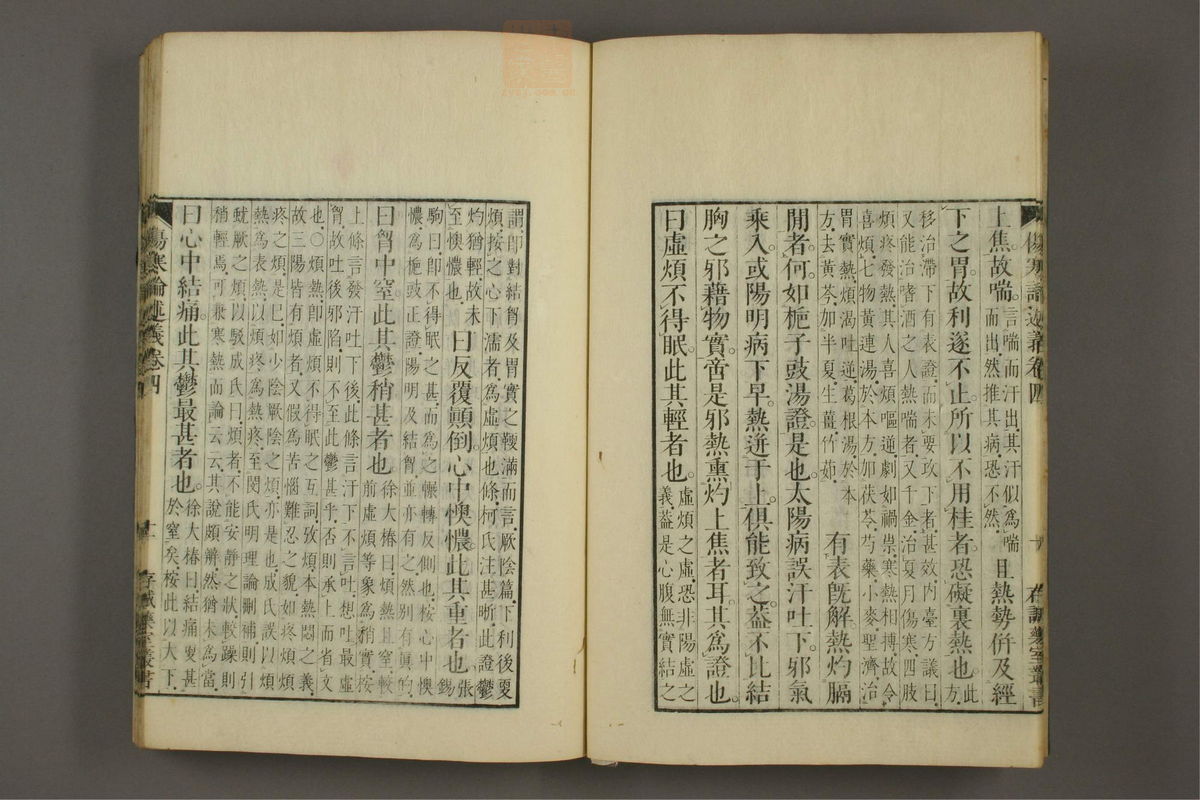 傷寒論述義卷四
十
存誠藥室叢書
上焦故喘。言喘而汗出其汗似為喘而出然推其病恐不然且熱勢併及經
下之胃故利遂不止所以不用桂者恐礙裏熱也此方
移治滯下有表證而未要攻下者甚效內臺方議曰
又能治嗜酒之人熱喘者又千金治夏月傷寒四肢
煩疼發熱其人喜煩嘔逆劇如禍祟寒熱相搏故令
喜煩七物黃連湯於本方加茯苓芍藥小麥聖濟治
胃實熱煩渴吐逆葛根湯於本
方去黃芩加半夏生薑竹茹有表既解熱灼膈
閒者何如梔子豉湯證是也太陽病誤汗吐下邪氣
乘入或陽明病下早熱迸于上俱能致之葢不比結
胸之邪藉物實啻是邪熱熏灼上焦者耳其為證也
曰虛煩不得眠此其輕者也虛煩之虛恐非陽虛之義葢是心腹無實結之
謂即對結胷及胃實之鞕滿而言厥陰篇下利後更
煩按之心下濡者為虛煩也條柯氏注甚晰此證鬱
灼猶輕故未至懊憹也曰反覆顛倒心中懊憹此其重者也張錫
駒曰即不得眠之甚而為之輾轉反側也按心中懊
憹為梔豉正證陽明及結胷並亦有之然別有眞的
曰胷中窒此其鬱稍甚者也徐大椿曰煩熱且窒較前虛煩等象為稍實按
上條言發汗吐下後此條言汗下不言吐想吐最虛
胷故吐後邪陷則不至此鬱甚乎否則承上而省文
也○煩熱即虛煩不得眠之互詞攷煩本熱悶之義
故三陽皆有煩者又假為苦惱難忍之貌如疼煩煩
疼之煩是巳如少陰厥陰之煩亦是也成氏誤以煩
熱為表熱以煩疼為熱疼至閔氏明理論刪補則引
蚘厥之煩以駁成氏曰煩者不能安靜之狀較躁則
稍輕焉可兼寒熱而論云云其說頗辨然猶未為當
曰心中結痛此其鬱最甚者也徐大椿曰結痛更甚於窒矣按此以大下
傷寒論述義卷四
十一
存誠藥室叢書